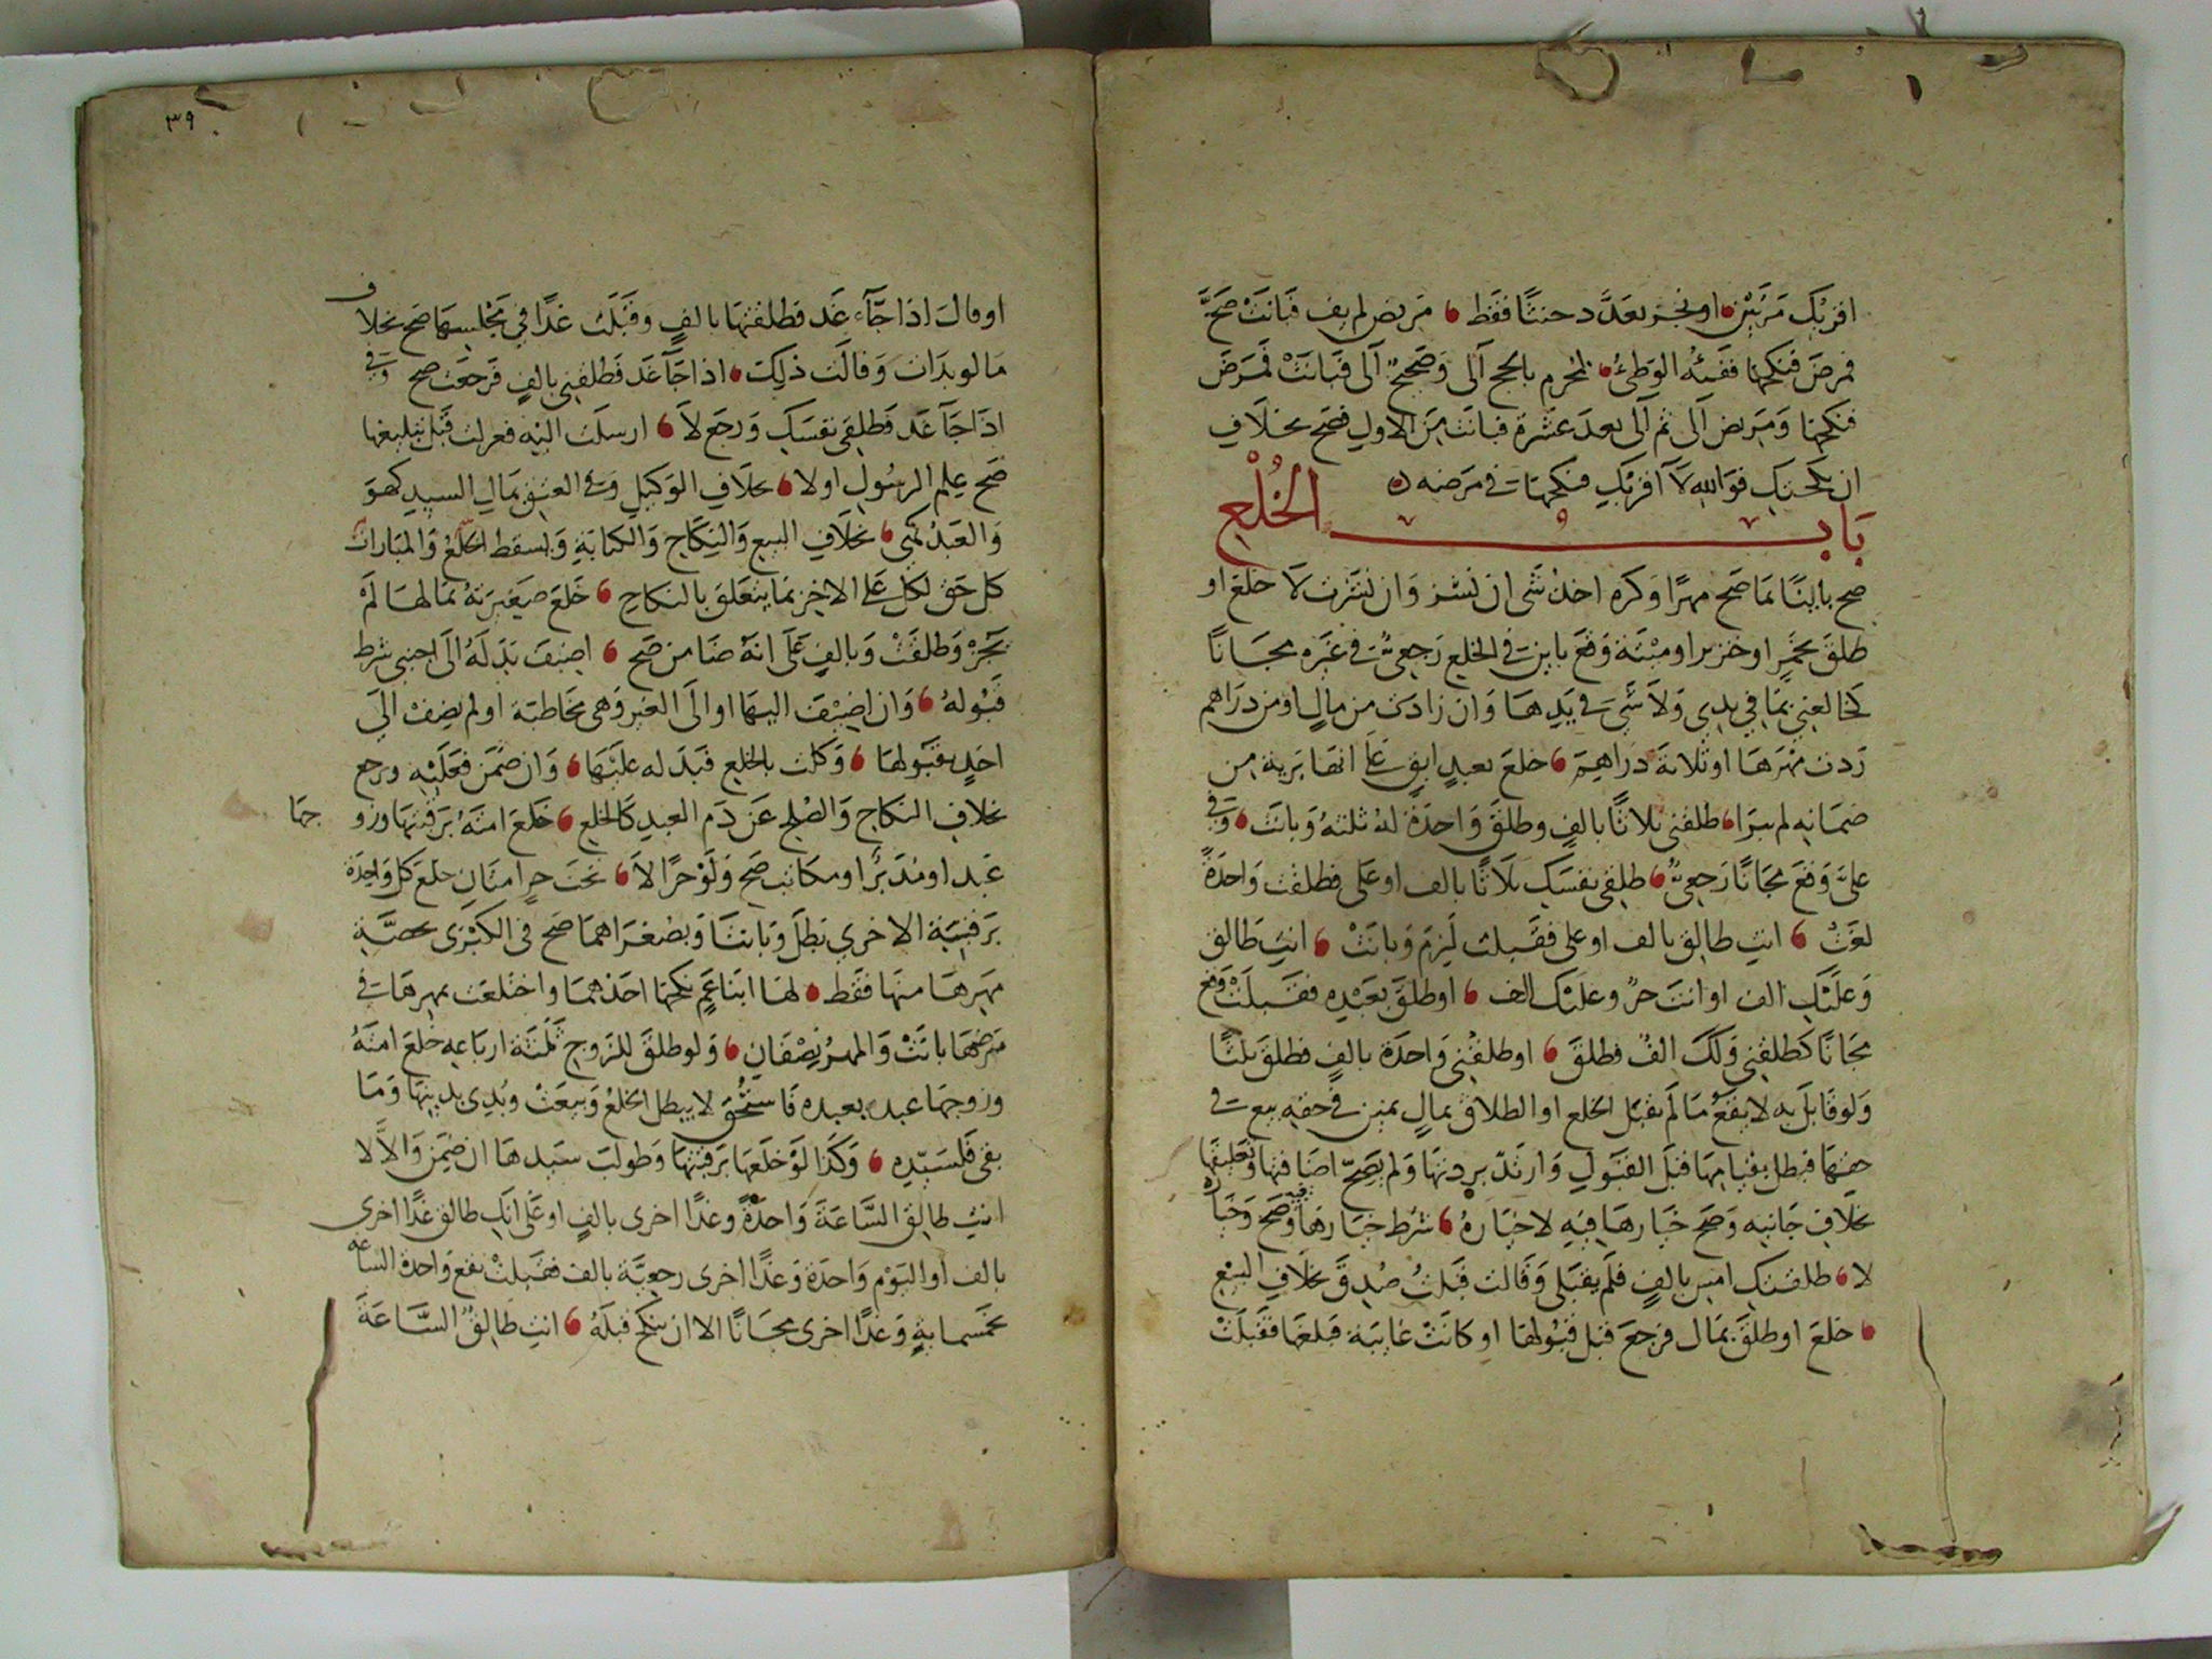 اقربك مرتين او نجز تعدد حنثا فقط مريض لم يف فبانت صح
فمرض فنكحها ففيئه الوطئ كمحرم بالحج آلى وصحيح آلى فبانت فمرض
فنكحها ومريض آلى ثم آلى بعد عشرة فبانت من الاول فصح بخلاف
ان نكحتك فوالله لا اقربك فنكحها في مرضه
باب الخلع
صح باينا بما صح مهرا وكره اخذ شى ان نشز وان نشزت لا خلع او
طلق بخمر او خنزير او ميتة وقع باين في الخلع رجعي في غيره مجانا
كخالعني بما في يدي ولا شي في يدها وان زادت من مال او من دراهم
ردت مهرها او ثلاثة دراهم خلع بعبد ابق على انها برية من
ضمانه لم تبرا طلقني ثلاثا بالف وطلق واحدة له ثلثه وبانت وفي
على وقع مجانا رجعي طلقي نفسك ثلاثا بالف او على فطلقت واحدة
لغت انت طالق بالف او على فقبلت لزم وبانت انت طالق
وعليك الف او انت حر وعليك الف او طلق بعبده فقبلت وقع
مجانا كطلقني ولك الف فطلق او طلقني واحدة بالف فطلق ثلثا
ولو قابل به لا يقع ما لم يقبل الخلع او الطلاق بمال يمين في حقه بيع في
حقها فبطل بقيامها قبل القبول وارتد بردتها ولم يصح اضافتها وتعليقها
بخلاف جانبه وصح خيارها فيه لا خياره شرط خيارها وصح وخياره
لا طلقتك امس بالف فلم يقبلى وقالت قبلت صدق بخلاف البيع
خلع او طلق بمال فرجع قبل قبولها او كانت غايبة فبلغها فقبلت
٣٩
او قال اذا جآء غد فطلقتها بالف وقبلت غدا في مجلسها صح بخلاف
ما لو بدات وقالت ذلك اذا جآ غد فطلقني بالف فرجعت صح وفي
اذا جآ غد فطلقي نفسك ورجع لا ارسلت اليه فعزلت قبل تبليغها
صح علم الرسول او لا بخلاف الوكيل وفي العتق بمال السيد كهو
والعبد كهي بخلاف البيع والنكاح والكتابة ويسقط الخلع والمبارات
كل حق لكل على الاخر بما يتعلق بالنكاح خلع صغيرته بمالها لم
يجز وطلقت وبالف على انه ضامن صح اضيف بدله الى اجنبي شرط
قبوله وان اضيف اليها او الى العبد وهي مخاطبة او لم يضف الى
احد بقبولها وكلت بالخلع فبدله عليها وان ضمن فعليه ورجع
بخلاف النكاح والصلح عن دم العبد كالخلع خلع امته برقبتها وزو جها
عبد او مدبر او مكاتب صح ولو حرا لا تحت حر امتان خلع كل واحدة
برقبة الاخرى بطل وبانتا وبصغراهما صح في الكبرى بحصة
مهرها منها فقط لها ابنا عم نكحها احدهما واختلعت بمهرها في
مرضها بانت والمهر نصفان ولو طلق للزوج ثلثة ارباعه خلع امته
وزوجها عبد بعبده فاستحق لا يبطل الخلع وبيعت وبدي بدينها وما
بقى فلسيده وكذا لو خلعها برقبتها وطولب سيدها ان ضمن والا لا
انت طالق الساعة واحدة وغدا اخرى بالف او على انك طالق غدا اخرى
بالف او اليوم واحدة وغدا اخرى رجعية بالف فقبلت يقع واحدة الساعة
بخمسماية وغدا اخرى مجانا الا ان ينكح قبله انت طالق الساعة